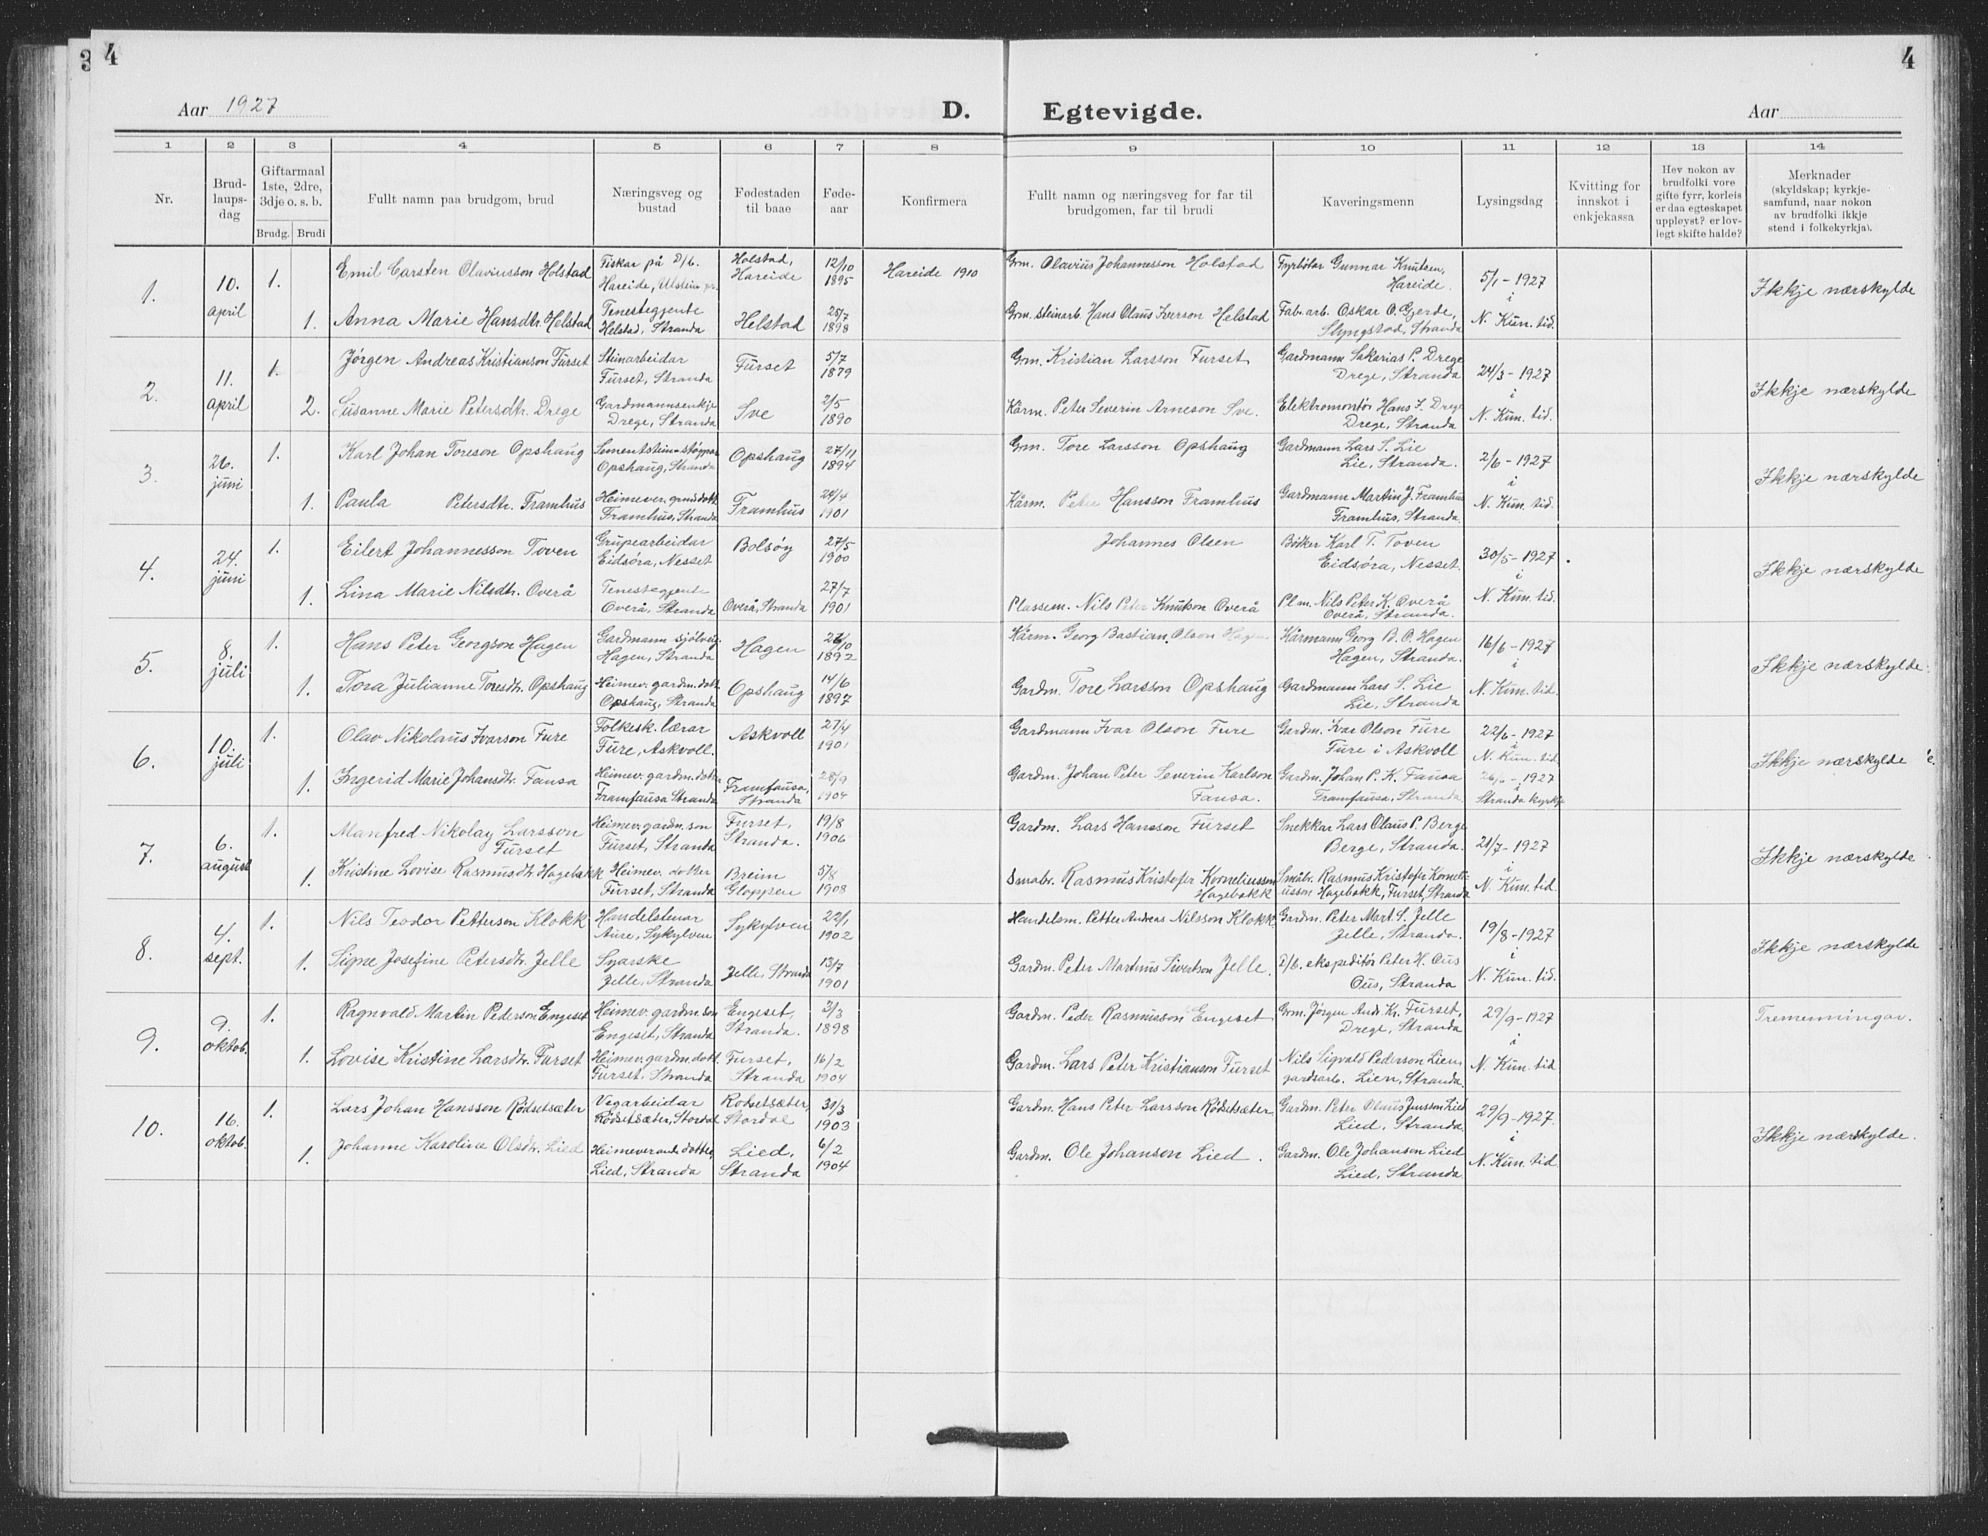 3
4
4
Aar 1927
D. Egtevigde.
Aar
1 2 3 4 5 6 7 8 9 10 11 12 13 14
Nr.
Brud-
laups-
dag
Giftarmaal
1ste, 2dre,
3dje o. s. b.
Brudg. Brudi
Fullt namn paa brudgom, brud
Næringsveg og
bustad
Fødestaden
til baae
Føde-
aar
Konfirmera
Fullt namn og næringsveg for far til
brudgomen, far til brudi
Kaveringsmenn
Lysingsdag
Kvitting for
innskot i
enkjekassa
Hev nokon av
brudfolki vore
gifte fyrr, korleis
er daa egteskapet
uppløyst? er lov-
legt skifte halde?
Merknader
(skyldskap; kyrkje-
samfund, naar nokon
av brudfolki ikkje
stend i folkekyrkja).
1.
10.
april
1.
Emil Carsten Olaviusson Holstad
Fiskar på D/b.
Hareide, Ulstein
Holstad,
Hareide
12/10
1895
Hareide 1910
Grm. Olavius Johannesson Holstad
Fyrbøtar Gunnar Knutsen,
Hareide.
1.
Anna Marie Hansdtr. Helstad
Tenestegjente
Helstad, Stranda
Helstad
25/7
1898
Grm. steinarb. Hans Olaus Iverson Helstad
Fabr. arb. Oskar O. Gjerde,
Slyngstad, Stranda
5/1 - 1927
i
N. Kun. tid.
Ikkje nærskylde
2.
11.
april
1.
Jørgen Andreas Kristianson Furset
Steinarbeidar
Furset, Stranda
Furset
5/7
1879
Grm. Kristian Larsson Furset
Gardmann Sakerias P. Drege
Drege, Stranda
2.
Susanne Marie Petersdtr. Drege
Gardmannsenkje
Drege, Stranda
Sve
2/5
1890
Kårm. Peter Severin Arneson Sve.
Elektromontør Hans S. Drege
Drege, Stranda
24/3 - 1927
i
N. Kun. tid.
Ikkje nærskylde
3.
26.
juni
1.
Karl Johan Toreson Opshaug
Sementstein-støypar
Opshaug, Stranda
Opshaug
27/11
1894
Grm. Tore Larsson Opshaug
Gardmann Lars S. Lie
Lie, Stranda.
1.
Paula Petersdtr. Framhus
Heimever. grmsdott.
Framhus, Stranda
Framhus
24/4
1901
Kårm. Peter Hansson Framhus
Gardmann Martin J. Framhus
Framhus, Stranda.
2/6 - 1927
i
N. Kun. tid.
Ikkje nærskylde
4.
24.
juni
1.
Eilert Johannesson Toven
Grupearbeidar
Eidsøra, Nesset
Bolsøy
27/5
1900
Johannes Olsen
Bødker Karl T. Toven
Eidsøra, Nesset.
1.
Lina Marie Nilsdtr. Overå
Tenestegjente
Overå, Stranda
Overå, Stranda
27/7
1901
Plassem. Nils Peter Knutson Overå
Pl.m. Nils Peter K. Overå
Overå, Stranda.
30/5 - 1927
i
N. Kun. tid.
Ikkje nærskylde
5.
8.
juli
1.
Hans Peter Georgson Hagen
Gardmann sjølveig.
Hagen, Stranda
Hagen
26/10
1892
Kårm. Georg Bastian Olson Hagen
Kårmann Georg B. O. Hagen
Hagen, Stranda.
1.
Tora Julianne Toresdtr. Opshaug
Heimev. gardm. dott
Opshaug, Stranda
Opshaug
14/6
1897
Gardm. Tore Larsson Opshaug
Gardmann Lars S. Lie
Lie, Stranda.
16/6 - 1927
i
N. Kun. tid.
Ikkje nærskylde.
6.
10.
juli
1.
Olav Nikolaus Ivarson Fure
Folkesk. lærar
Fure, Askvoll.
Askvoll
27/4
1901
Gardmann Ivar Olson Fure
Gardm. Ivar Olson Fure
Fure i Askvoll
1.
Ingerid Marie Johansdtr. Fausa
Heimev. gardm. dotter
Framfausa Stranda
Framfausa,
Stranda
28/9
1904
Gardm. Johan Peter Severin Karlson
Fausa.
Gardm. Johan P. K. Fausa
Framfausa, Stranda.
22/6 - 1927
i
N. Kun. tid
26/6 - 1927
i
Stranda kyrkje
Ikkje nærskylde
7.
6.
august
1.
Manfred Nikolay Larsson
Furset
Heimev. gardm. son
Furset, Stranda
Furset,
Stranda.
19/8
1906
Gardm. Lars Hansson Furset
Snekkar Lars Olaus P. Berge
Berge, Stranda.
1.
Kristine Lovise Rasmusdtr. Hagebakk
Heimev. dotter
Furset, Stranda
Breim
Gloppen
5/8
1908
Småbr. Rasmus Kristofer Korneliusson
Hagebakk
Småbr. Rasmus Kristofer Korneli-
usson Hagebakk, Furset, Stranda
21/7 - 1927
i
N. Kun. tid.
Ikkje nærskylde
8.
4.
sept.
1.
Nils Teodor Petterson Klokk
Handelstenar
Aure, Sykylven
Sykylven
22/1
1902
Handelsm. Petter Andreas Nilsson Klokk
Gardm. Peter Mart. S. Jelle
Jelle, Stranda.
1.
Signe Josefine Petersdtr. Jelle
Syarske
Jelle, Stranda
Jelle Stranda
13/7
1901
Gardm. Peter Martinus Sivertson Jelle.
D/b. ekspeditør Peter H. Ous
Ous, Stranda
19/8 - 1927
i
N. Kun. tid.
Ikkje nærskylde
9.
9.
oktob.
1.
Ragnvald Martin Pederson Engeset
Heimev. gardm. son
Engeset, Stranda
Engeset,
Stranda.
3/3
1898
Gardm. Peder Rasmusson Engeset
Grm. Jørgen And. Kr. Furset,
Drege, Stranda
1.
Lovise Kristine Larsdtr. Furset
Heimev. gardm. dott
Furset, Stranda
Furset,
Stranda
16/2
1904
Gardm. Lars Peter Kristianson Furset
Nils Sigvald Pederson Lien,
gardsarb. Lien, Stranda
29/9 - 1927
i
N. Kun. tid
Tremenningar.
10.
16.
oktob.
1.
Lars Johan Hansson Rødsetsæter
Vegarbeidar
Rødsetsæter, Stordal
Rødsetsæter,
Stordal
30/3
1903
Gardm. Hans Peter Larsson Rødsetsæter
Gardm. Peter Olaus Jensson Lied
Lied, Stranda
1.
Johanne Karoline Olsdtr. Lied
Heimeverande dotter
Lied, Stranda
Lied,
Stranda
6/2
1904
Gardm. Ole Johanson Lied.
Gardm. Ole Johansen Lied
Lied, Stranda.
29/9 - 1927.
i
N. Kun. tid
Ikkje nærskylde.